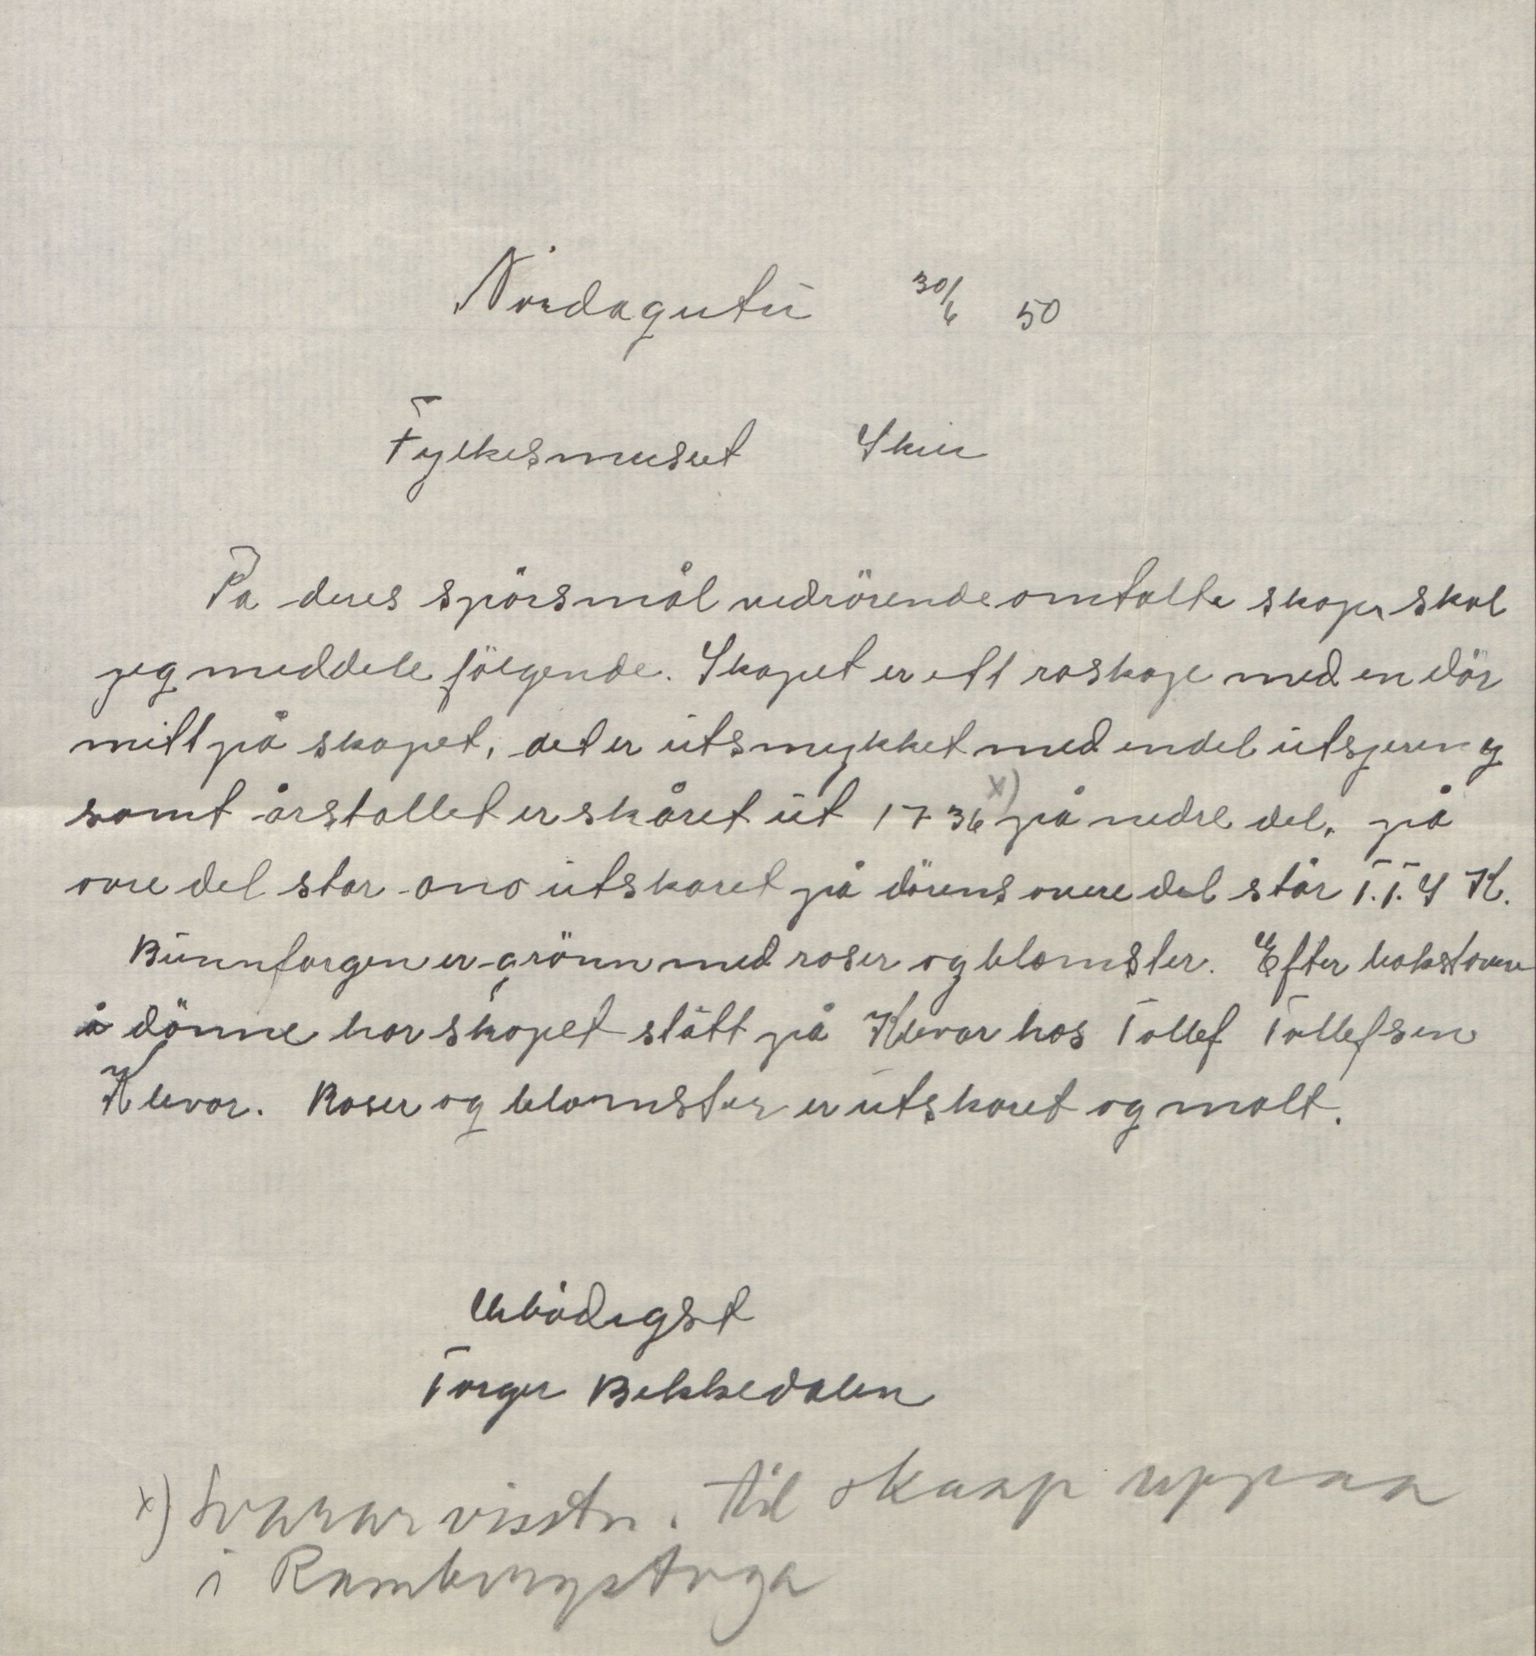 Nordagutu 30/6 50
Fylkesmuseet Skien
På deres spörsmål vedrörende omtalte skap, skal
jeg meddele fölgende. Skapet er ett roskap med en dör
mitt på skapet, det er utsmykket med endel utsjering
samt årstallet er skåret ut 1736 x) på nedre del, på
övre del star ano utskaret på dörens övere del står T.T.S K.
Bunnfargen er grönn med roser og blomster. Efter bokstavene
å dömme har skapet stått på Klevar hos Tollef Tollefsen
Klevar. Roser og blomster er utskaret og malt.
Erbödigst
Torger Bekkedalen
x) Svarar visstn. til skaap uppaa
i Rambergstoga